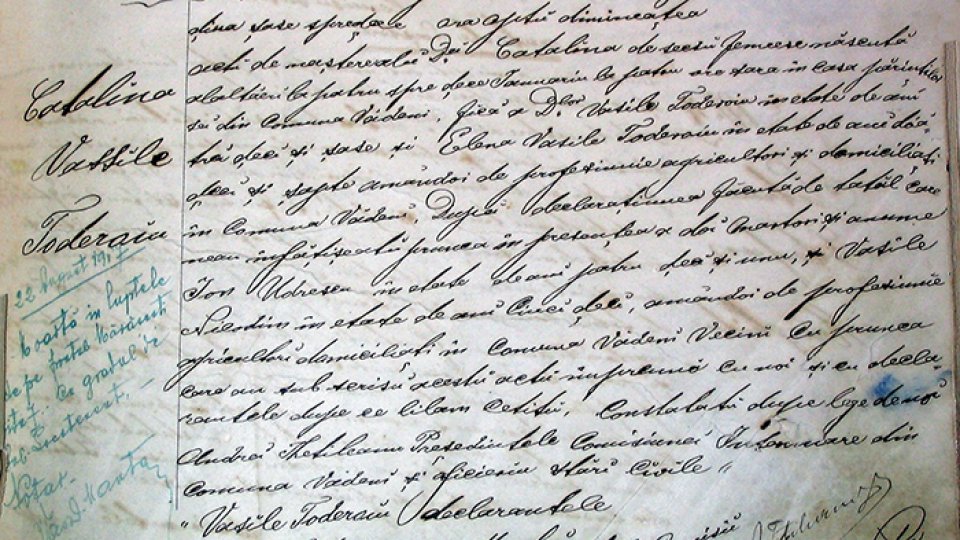 Catalina
Vassile
Toderoiu
22 August 1917
Moartă în luptele
de pe frontul Mărăsesti
Cu gradul de
sub Locotenent.
Notat.
spre dece ora optŭ dimineața
actŭ de nascerea lui D. Catalina de secsŭ femeesc născută
alaltăeri la patru spre dece Januariu la patru ore sara în casa părinților
sei din Comuna Vădeni, fiică a D. Vasile Toderoiu în etate de ani
trĭ decĭ și șase și Elena Vasile Toderoiu în etate de ani doă-
decĭ și șapte amândoi de profesiunie agricultori și domiciliați
în Comuna Vădeni, După declarațiunea facută de tatăl care
neau înfățișeatŭ prunca în presența a doi martori și anume
Ion Udrescu în etate de ani patru decĭ și unu, și Vasile
Nicodim în etate de ani cinci decĭ, amândoi de profesiunie
agricultori domiciliați în Comuna Vădeni Vecini cu prunca
care au sub scrisŭ acestŭ actŭ împreună cu noi și cu decla-
rantele dupe ce li lam cetitŭ. Constatatŭ dupe lege de noi
Andrei Presedintele Comisiunei Interimare din
Comuna Vădeni și oficieru stări Civile
"Vasile Toderoiu declarantele